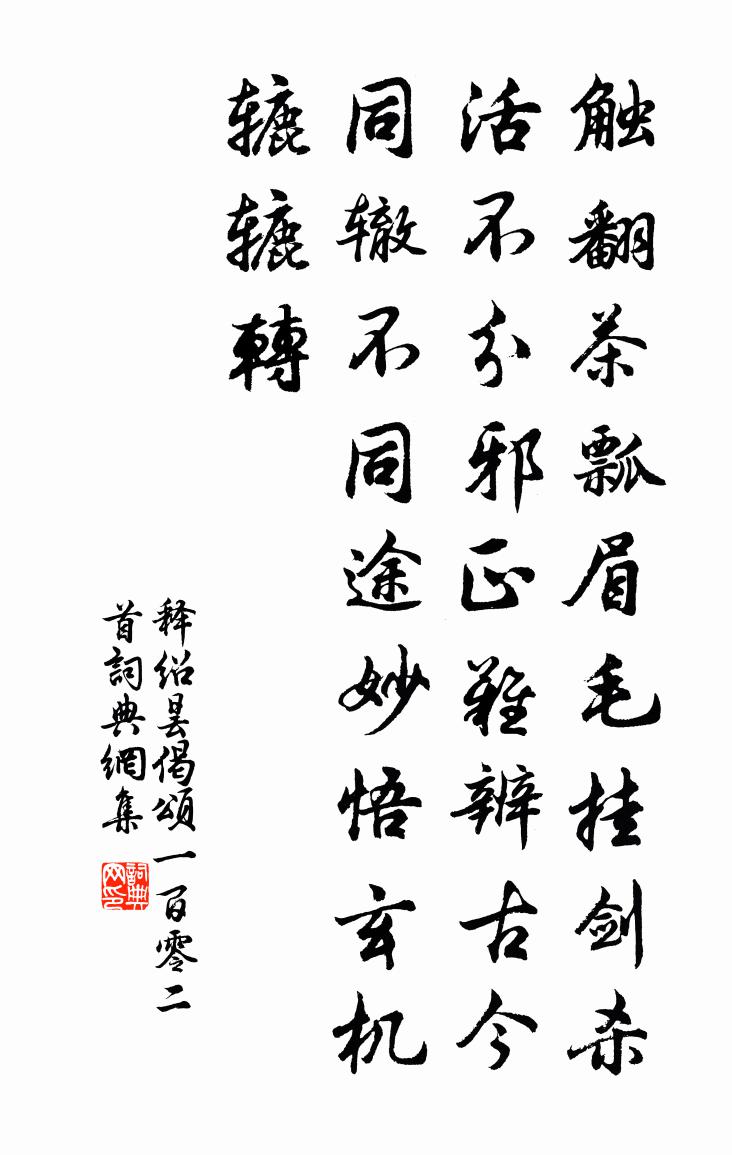 触翻茶瓢眉毛挂剑杀
活不分邪正难辨古今
同辙不同途妙悟玄机
辘辘轉
释绍昙偈頌一百零二
首詞典網集
詞典网印